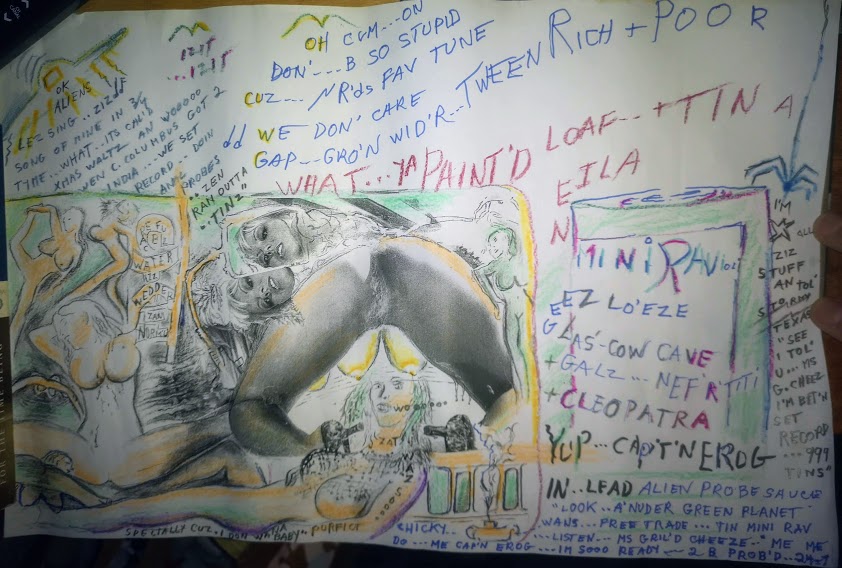 OK
ALIENS
LEZ SING...ZIZ
SONG OF MINE IN 3/4
TIME...WHAT...ITS CAL'D
XMAS WALTZ AN WOOOOO
WEN C.COLUMBUS GOT 2
INDIA...WE SET
RECORD...DOIN
ANL PROBES
IZIT
...IZIT
OH CUM...ON
DON'...B SO STUPID
CUZ... NR'ds FAV TUNE
WE DON' CARE
GAP...GRO'N WID'R...TWEEN RICH + POOR
WHAT...YA PAINT'D LOAF..+TIN A
EILA
N
..ZEN
RAN OUTTA
"TINZ"
WATER
WEDDER
IZAN
WOOOOOO
ZAT
MINI RAVIOLI
EEZ LO'EZE
GLAS'-COW CAVE
+GALZ...NEFR'TITI
+CLEOPATRA
YUP...CAP'T'N EROG
IN..LEAD ALIEN PROBE SAUCE
"LOOK..A'NUDER GREEN PLANET
WANS...FREE TRADE...TIN MINI RAV
...LISTEN..MS GRIL'D CHEEZE.." ME ME
DO...ME CAP'N EROG...IM SOOO READY—2 B PROB'D...24-7
I'M
A
ALL
ZIZ
STUFF
AN TOL'
TEXAS
"SEE
I TOL'
U...MS
G.CHEEZ
I'M BET'N
SET
RECORD
...999
TINS"
SPECIALLY CUZ
BABY".. PURFICT
CHICKY..
FOR THE TIME BEING